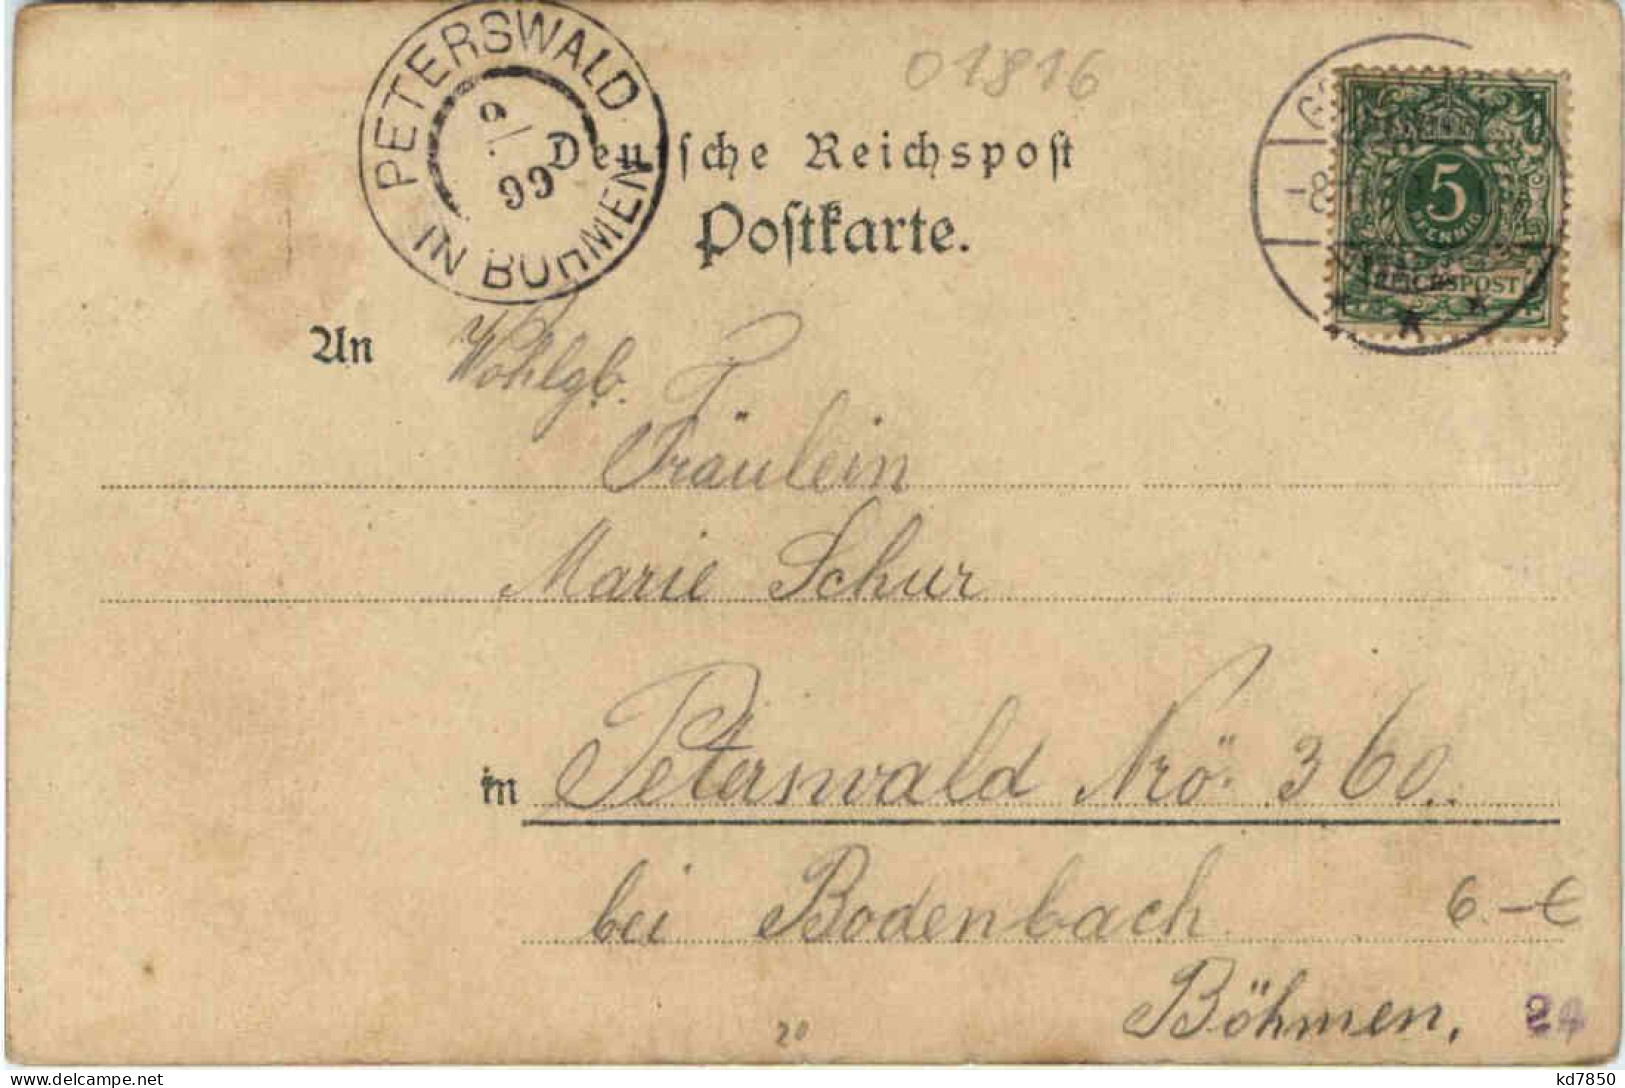 PETERSWALD
IN BÖHMEN
9/
99
01816
Deutsche Reichspost
Postkarte.
5
PFENNIG
REICHSPOST
-8.
An Wohlgb.
Fräulein
Marie Schur
in Peterswald Nrö. 360.
bei Bodenbach
6.-€
Böhmen.
20
24
kd7850